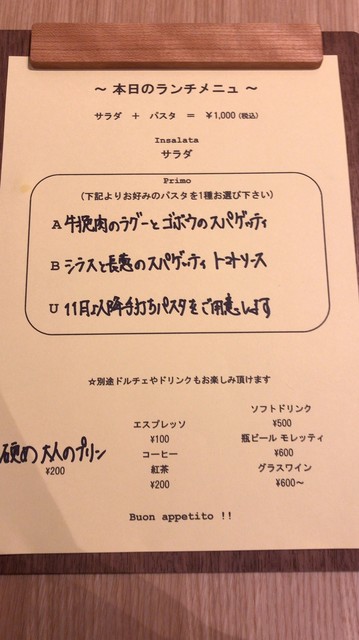 ～ 本日のランチメニュ ～
サラダ ＋ パスタ ＝ ¥1,000 (税込)
Insalata
サラダ
Primo
(下記よりお好みのパスタを1種お選び下さい)
A 牛挽肉のラグーとゴボウのスパゲッティ
B シラスと長葱のスパゲッティ トマトソース
U 11月以降手打ちパスタをご用意します
☆別途ドルチェやドリンクもお楽しみ頂けます
硬め 大人のプリン
¥200
エスプレッソ
¥100
コーヒー
紅茶
¥200
ソフトドリンク
¥500
瓶ビール モレッティ
¥600
グラスワイン
¥600～
Buon appetito !!